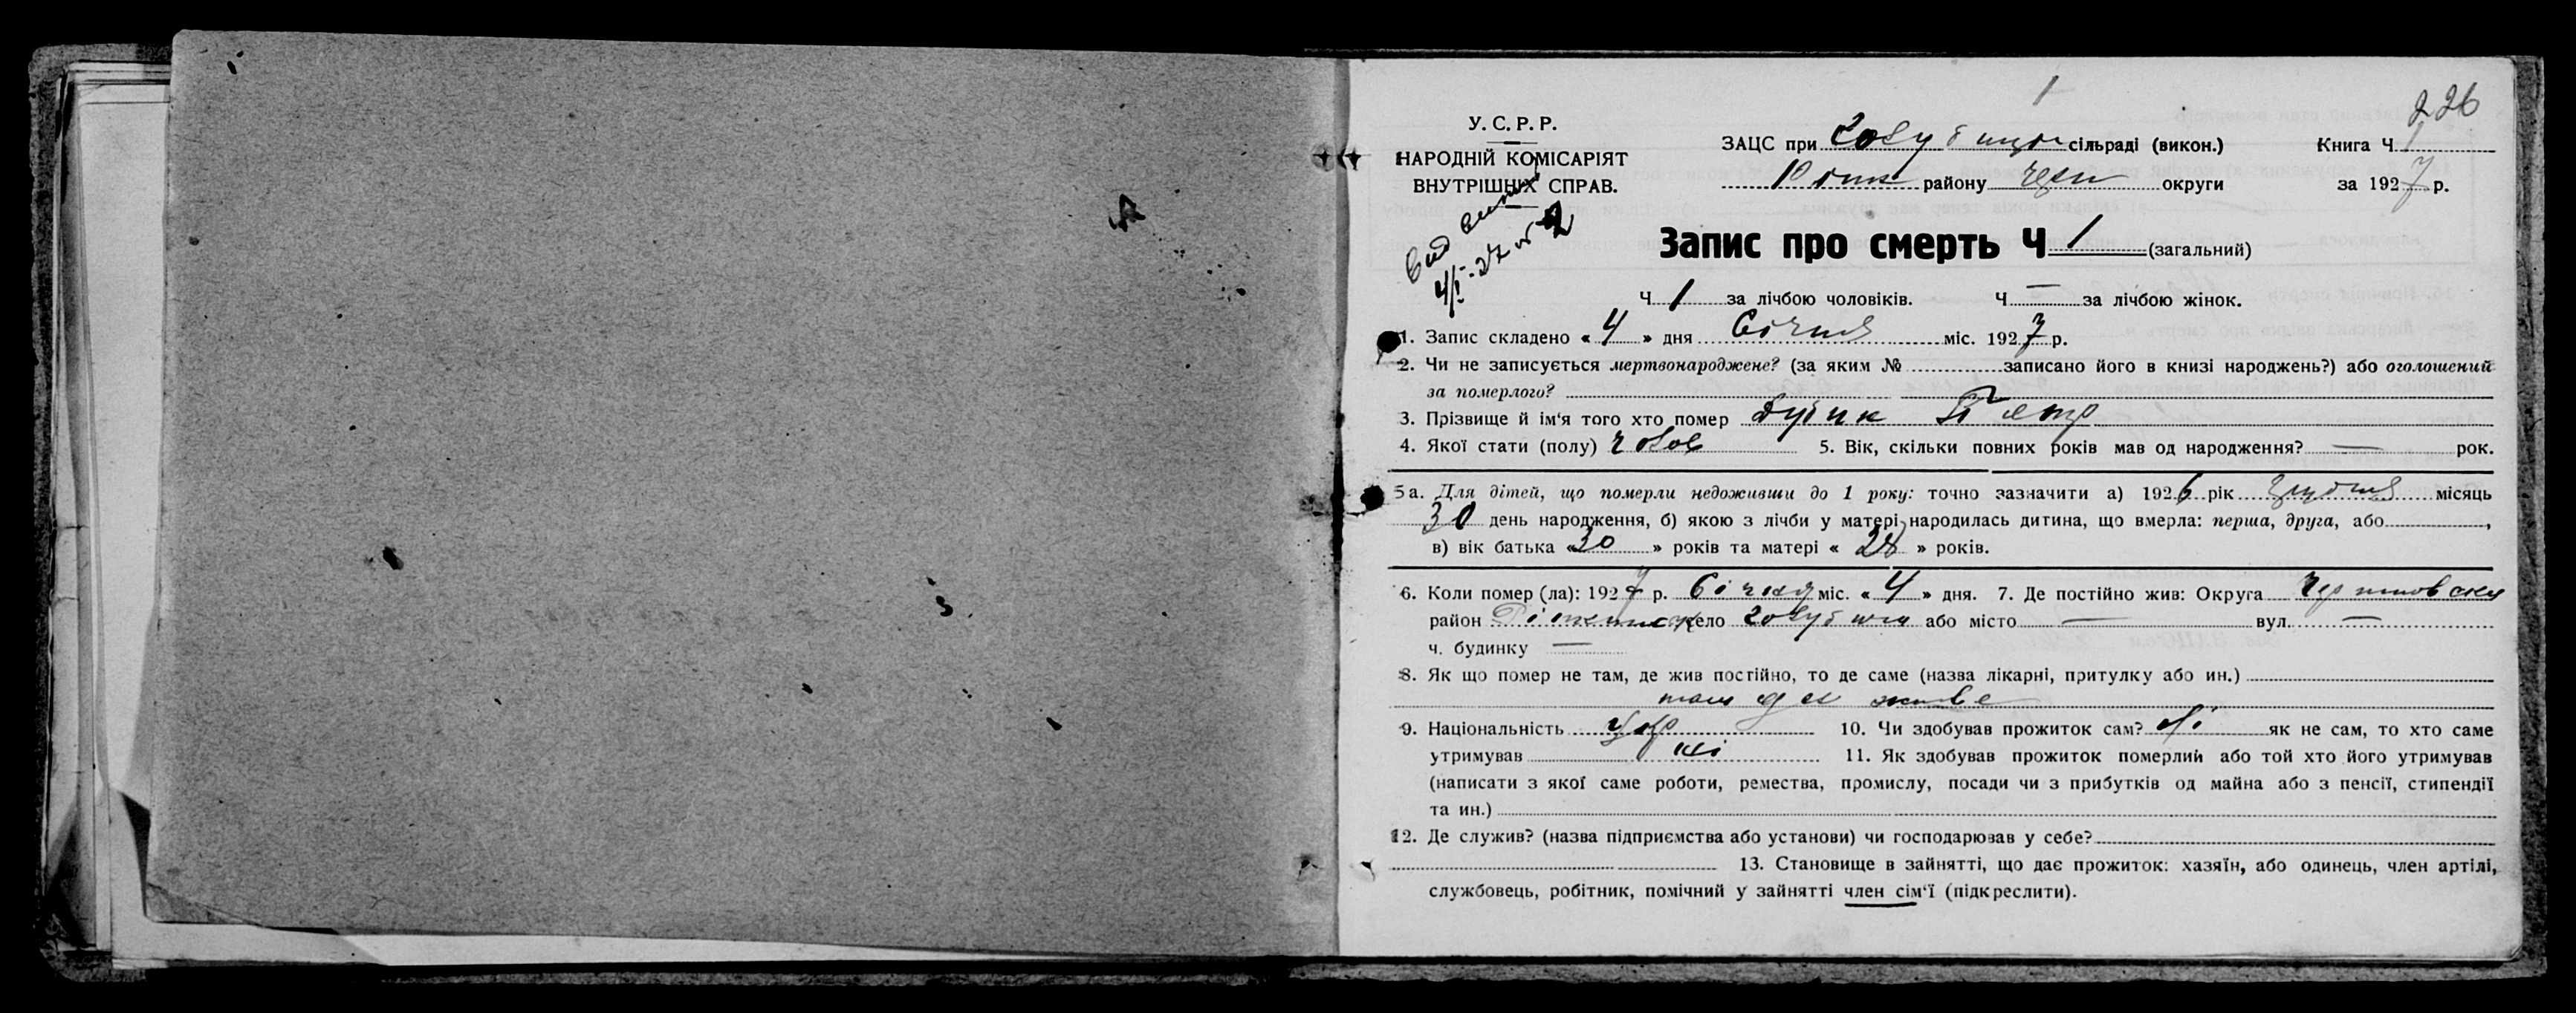 1
226
У. С. Р. Р.
НАРОДНІЙ КОМІСАРІЯТ
ВНУТРІШНІХ СПРАВ.
ЗАЦС при Голубицкі сільраді (викон.)
Книга Ч 1
району Черн округи
за 1927 р.
4/I-27 №2
Запис про смерть Ч 1 (загальний)
Ч 1 за лічбою чоловіків. Ч — за лічбою жінок.
1. Запис складено « 4 » дня Січня міс. 1927 р.
2. Чи не записується мертвонароджене? (за яким № записано його в книзі народжень?) або оголошений
за померлого?
3. Прізвище й ім'я того хто помер Дубик Петр
4. Якої стати (полу) чолов 5. Вік, скільки повних років мав од народження? — рок.
5а. Для дітей, що померли недоживши до 1 року: точно зазначити а) 1926 рік грудня місяць
30 день народження, б) якою з лічби у матері народилась дитина, що вмерла: перша, друга, або ,
в) вік батька « 30 » років та матері « 28 » років.
6. Коли помер (ла): 1927 р. Січня міс. « 4 » дня. 7. Де постійно жив: Округа
район село або місто — вул. —
ч. будинку —
8. Як що помер не там, де жив постійно, то де саме (назва лікарні, притулку або ин.)
там де живе
9. Національність Укр 10. Чи здобував прожиток сам? Ні як не сам, то хто саме
утримував 11. Як здобував прожиток померлий або той хто його утримував
(написати з якої саме роботи, ремества, промислу, посади чи з прибутків од майна або з пенсії, стипендії
та ин.)
12. Де служив? (назва підприємства або установи) чи господарював у себе?
13. Становище в зайнятті, що дає прожиток: хазяїн, або одинець, член артілі,
службовець, робітник, помічний у зайнятті член сім'ї (підкреслити).